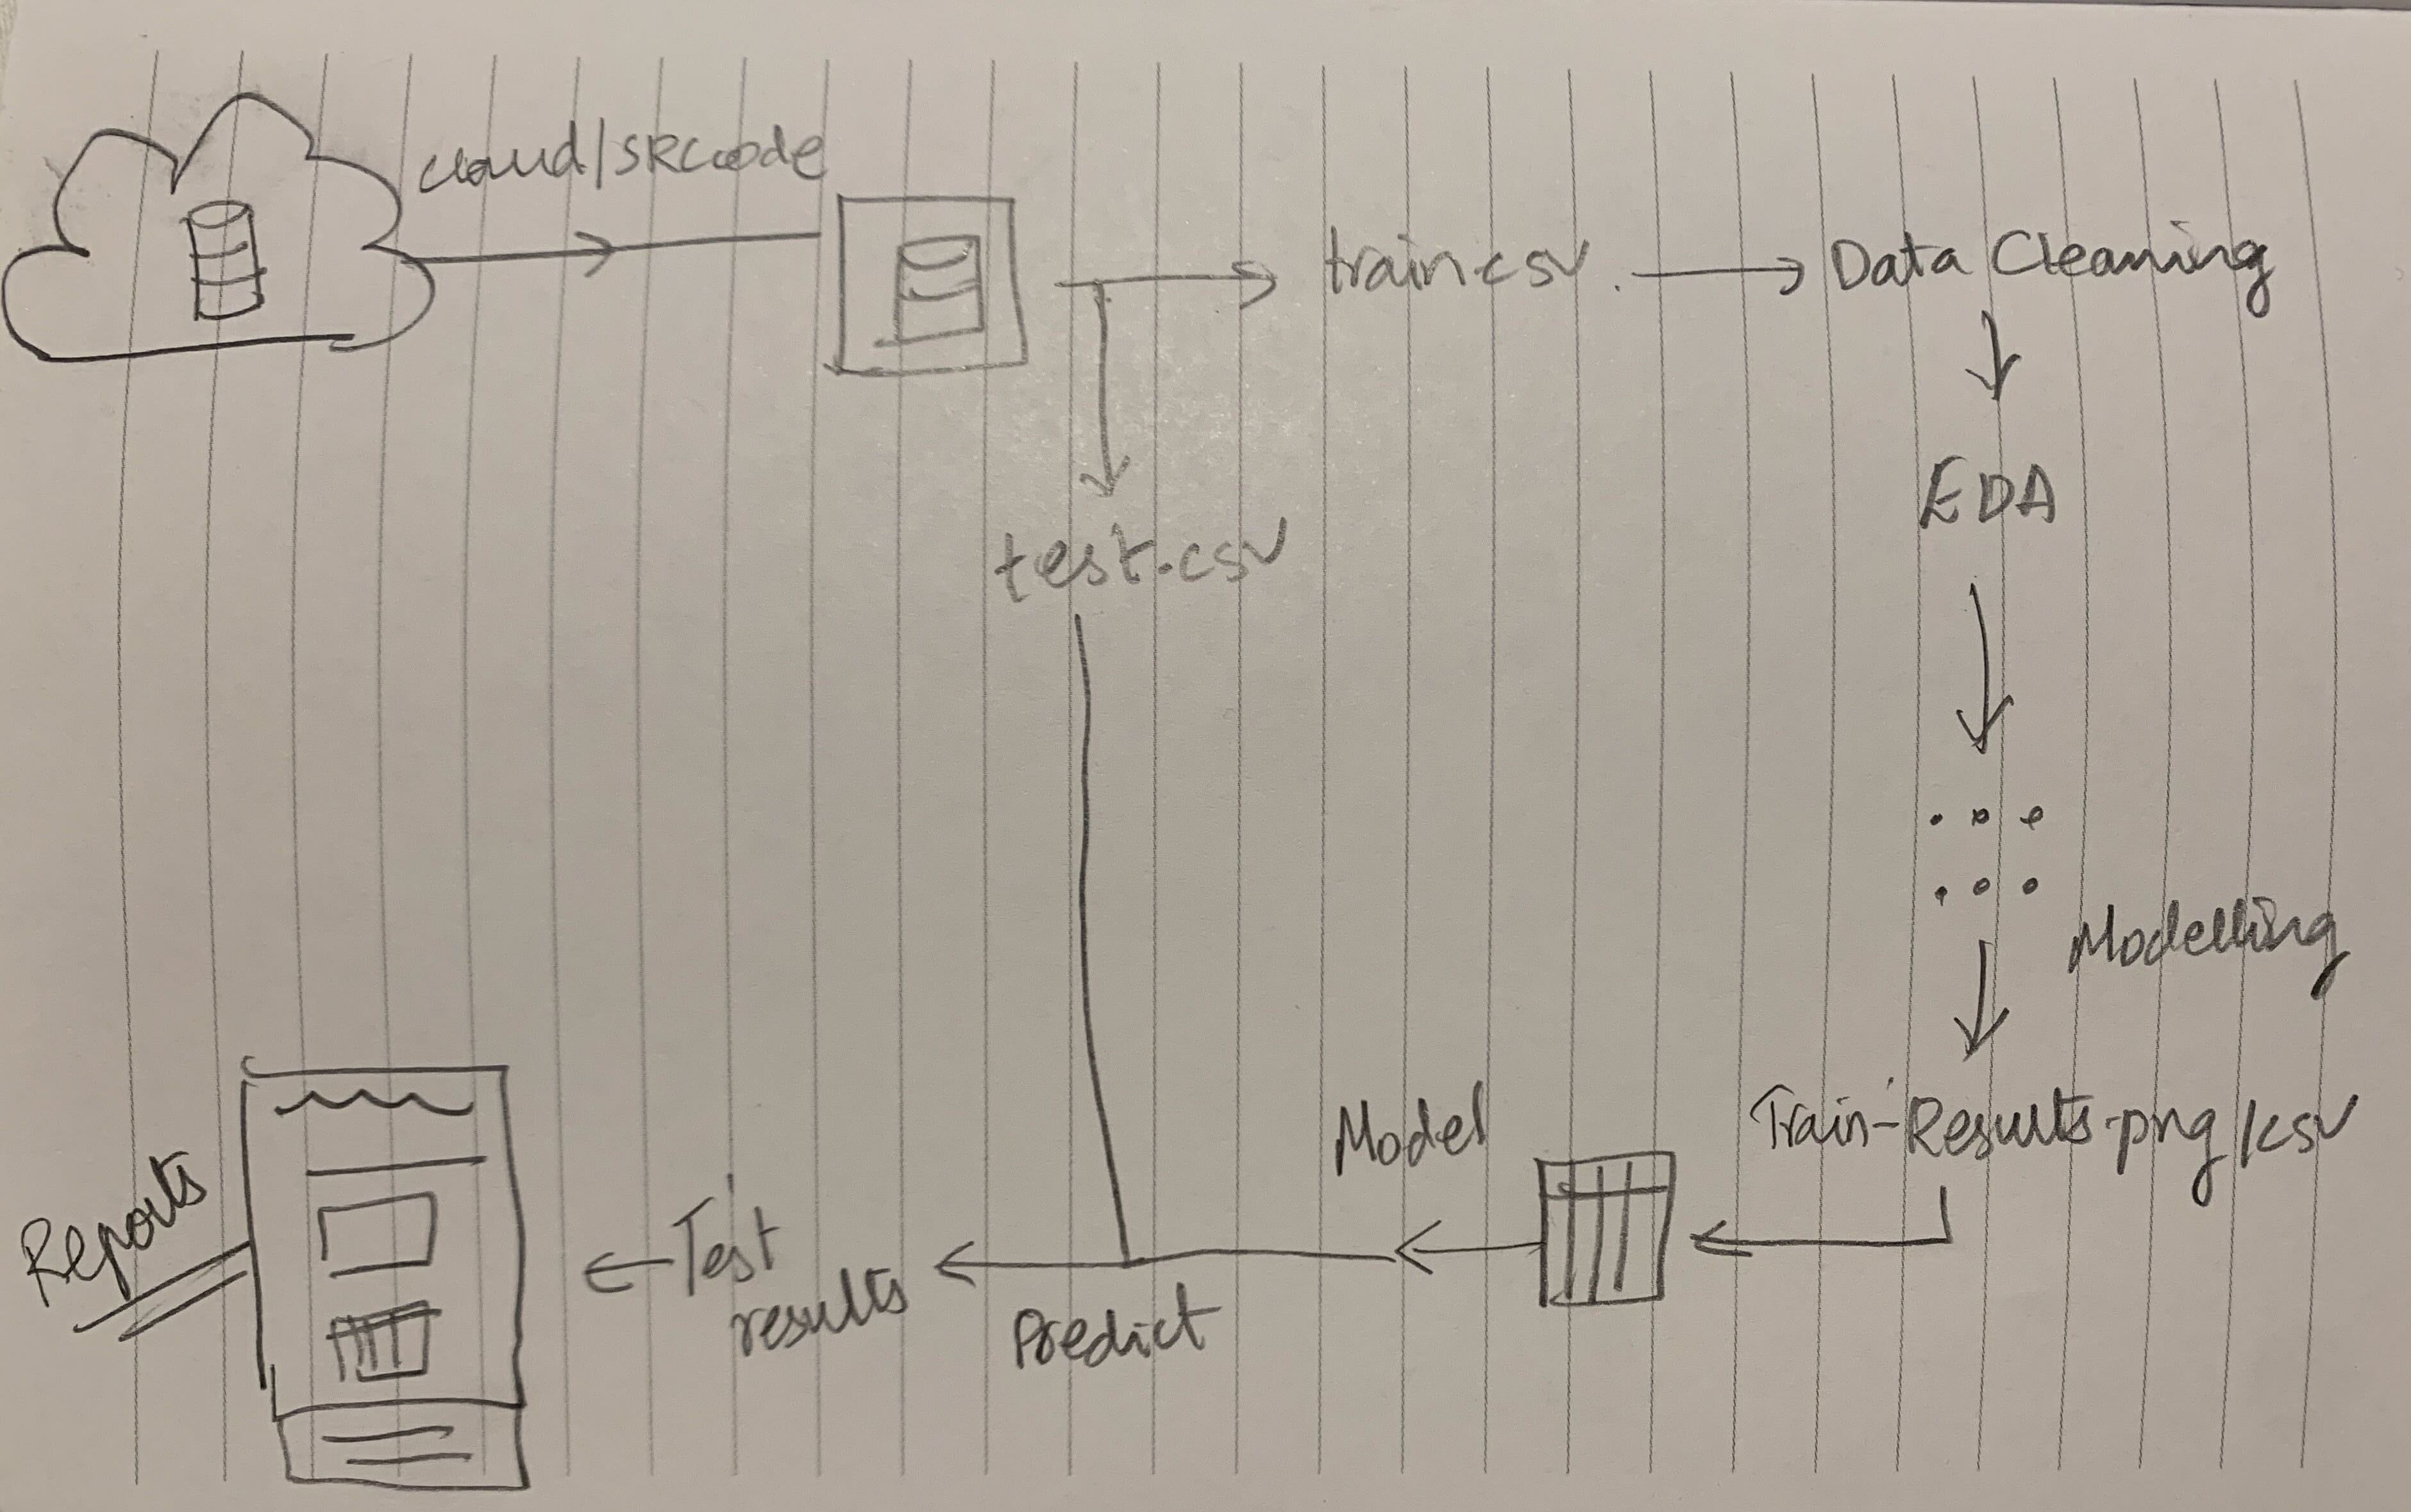 cloud/SRCcode
train.csv
Data Cleaning
EDA
test.csv
Modelling
Train-Results.png/csv
Model
Predict
Test
results
Reports